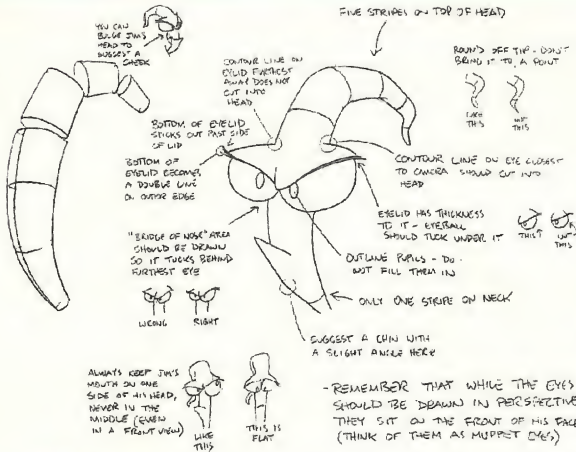 YOU CAN
BULGE JIM'S
HEAD TO
SUGGEST A
CHEEK
FIVE STRIPES ON TOP OF HEAD
CONTOUR LINE ON
EYLID FURTHEST
AWAY DOES NOT
CUT INTO
HEAD
ROUND OFF TIP - DON'T
BRING IT TO A POINT
LIKE
THIS
NOT
THIS
BOTTOM OF EYELID
STICKS OUT PAST SIDE
OF LID
BOTTOM OF
EYELID BECOMES
A DOUBLE LINE
ON OUTER EDGE
CONTOUR LINE ON EYE CLOSEST
TO CAMERA SHOULD CUT INTO
HEAD
EYELID HAS THICKNESS
TO IT - EYEBALL
SHOULD TUCK UNDER IT
THIS
NOT
THIS
"BRIDGE OF NOSE" AREA
SHOULD BE DRAWN
SO IT TUCKS BEHIND
FURTHEST EYE
WRONG
RIGHT
OUTLINE PUPILS - DO
NOT FILL THEM IN
ONLY ONE STRIPE ON NECK
SUGGEST A CHIN WITH
A SLIGHT ANGLE HERE
ALWAYS KEEP JIM'S
MOUTH ON ONE
SIDE OF HIS HEAD,
NEVER IN THE
MIDDLE (EVEN
IN A FRONT VIEW)
LIKE
THIS
THIS IS
FLAT
- REMEMBER THAT WHILE THE EYES
SHOULD BE DRAWN IN PERSPECTIVE
THEY SIT ON THE FRONT OF HIS FACE
(THINK OF THEM AS MUPPET EYES)